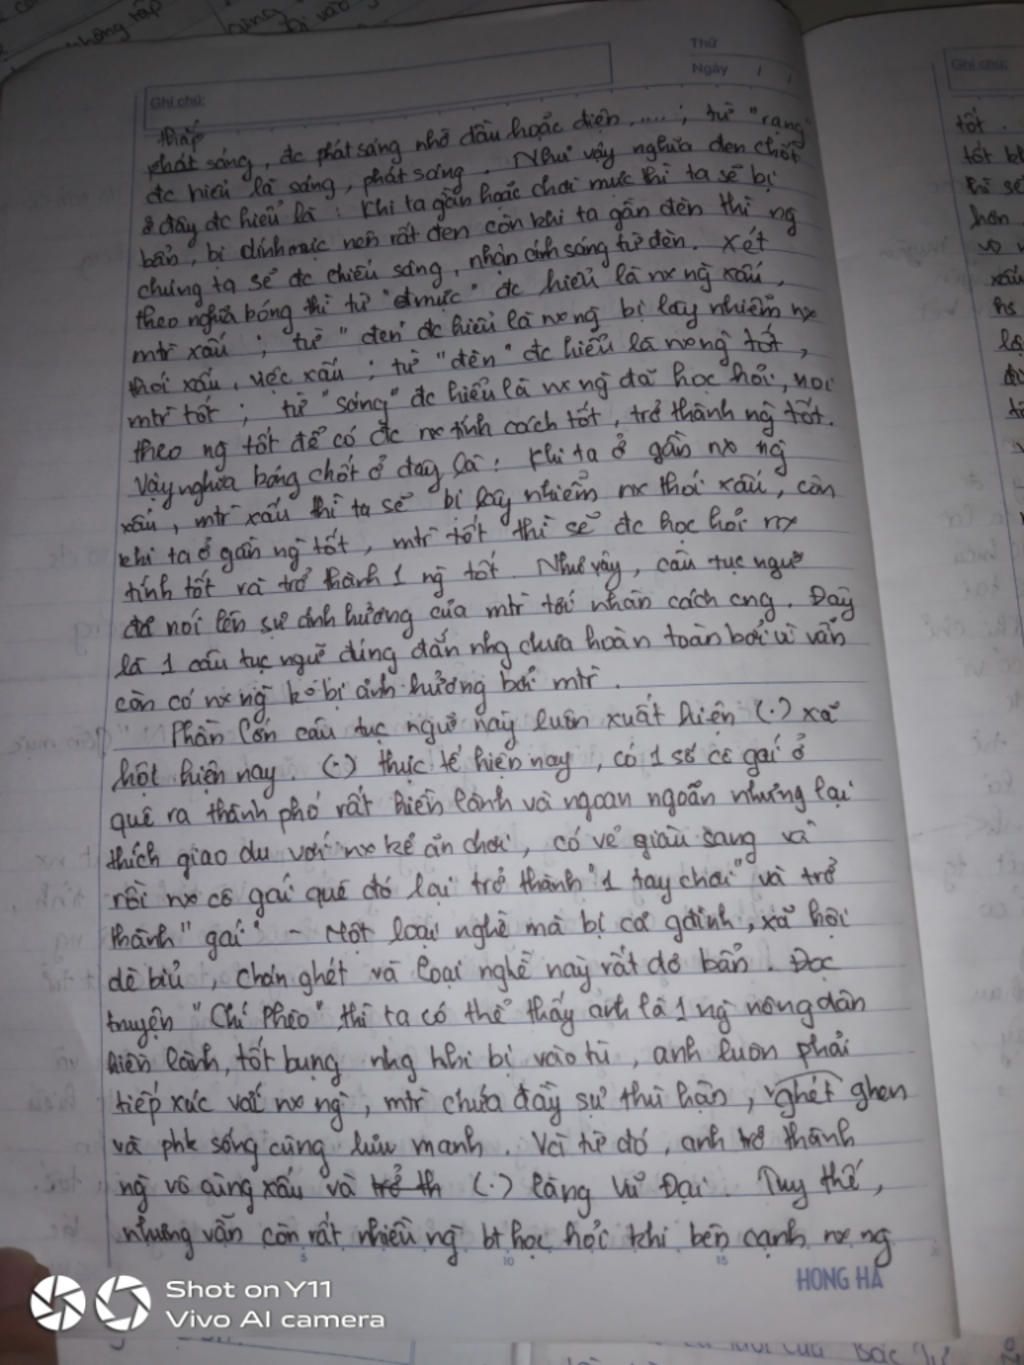 Thứ
Ngày / /
Ghi chú:
thắp
phát sáng, đc phát sáng nhờ dầu hoặc điện,....; từ "rạng"
đc hiểu là sáng, phát sáng. Như vậy nghĩa đen chốt
ở đây đc hiểu là: Khi ta gần hoặc chơi mực thì ta sẽ bị
bẩn, bị dính mực nên rất đen còn khi ta gần đèn thì ng
chúng ta sẽ đc chiếu sáng, nhận ánh sáng từ đèn. Xét
theo nghĩa bóng thì từ "mực" đc hiểu là nx ng xấu,
mtr xấu; từ "đen" đc hiểu là nx ng bị lây nhiễm nx
thói xấu, việc xấu; từ "đèn" đc hiểu là nx ng tốt,
mtr tốt; từ "sáng" đc hiểu là nx ng đã học hỏi, noi
theo ng tốt để có đc nx tính cách tốt, trở thành ng tốt.
Vậy nghĩa bóng chốt ở đây là: Khi ta ở gần nx ng
xấu, mtr xấu thì ta sẽ bị lây nhiễm nx thói xấu, còn
khi ta ở gần ng tốt, mtr tốt thì sẽ đc học hỏi nx
tính tốt và trở thành 1 ng tốt. Như vậy, câu tục ngữ
đã nói lên sự ảnh hưởng của mtr tới nhân cách cng. Đây
là 1 câu tục ngữ đúng đắn nhg chưa hoàn toàn bởi vì vẫn
còn có nx ng ko bị ảnh hưởng bởi mtr.
Phần lớn câu tục ngữ này luôn xuất hiện (.) xã
hội hiện nay. (.) thực tế hiện nay, có 1 số cô gái ở
quê ra thành phố rất hiền lành và ngoan ngoãn nhưng lại
thích giao du với nx kẻ ăn chơi, có vẻ giàu sang và
rồi nx cô gái quê đó lại trở thành "1 tay chơi" và trở
thành "gái" - Một loại nghề mà bị cả gđình, xã hội
dè bỉu, chán ghét và loại nghề này rất dơ bẩn. Đọc
truyện "Chí Phèo" thì ta có thể thấy anh là 1 ng nông dân
hiền lành, tốt bụng nhg khi bị vào tù, anh luôn phải
tiếp xúc với nx ng, mtr chứa đầy sự thù hận, ghét ghen
và phk sống cùng lưu manh. Và từ đó, anh trở thành
ng vô cùng xấu và trở th (.) làng Vũ Đại. Tuy thế,
nhưng vẫn còn rất nhiều ng bt học hỏi khi bên cạnh nx ng
5 10 15
HONG HA
Shot on Y11
Vivo AI camera